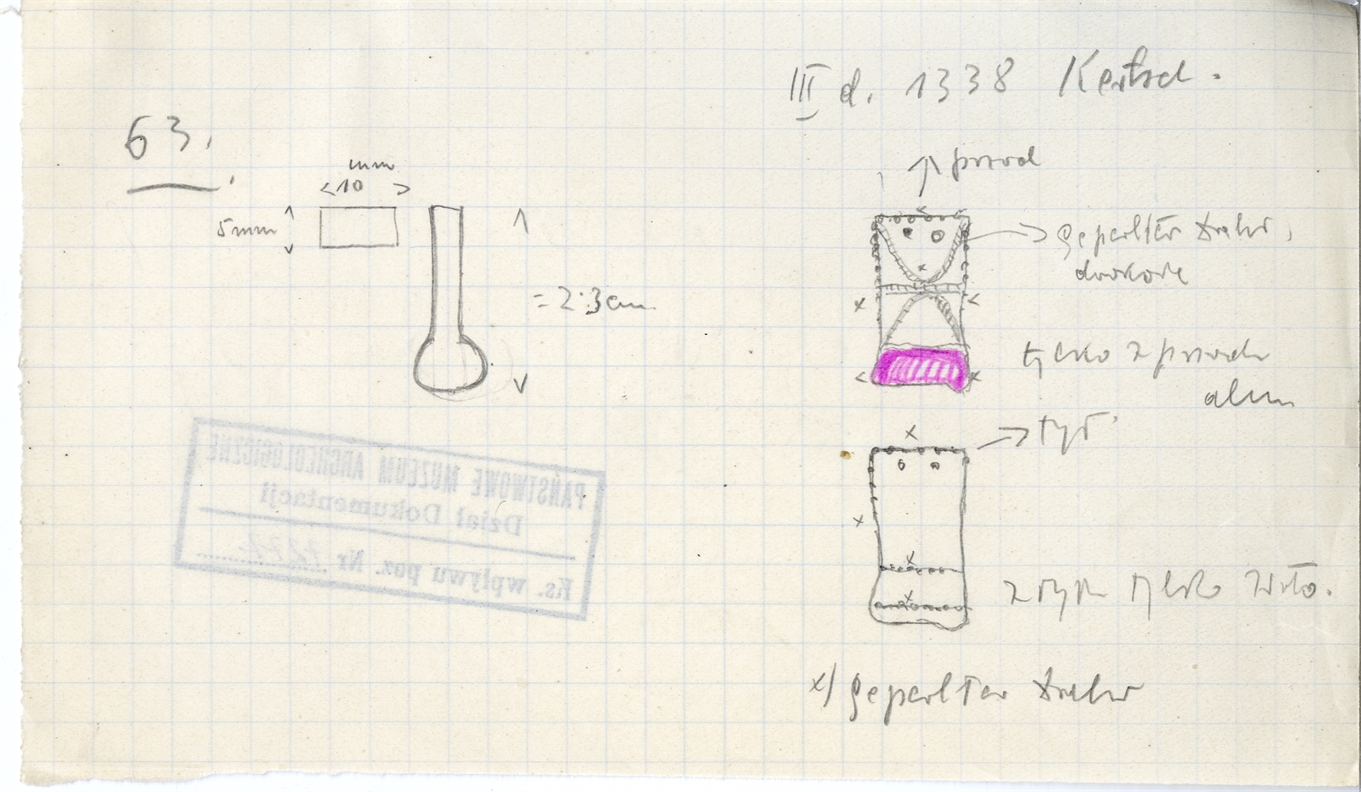 63.
mm
10
5mm
= 2.3 cm
III d. 1338 Kertsch.
przod
geperlter Draht,
dookoła
tylko z przodu
alm
tył
z tyłu tylko złoto.
x) geperlter Draht
PAŃSTWOWE MUZEUM ARCHEOLOGICZNE
Dział Dokumentacji
Ks. wpływu poz. Nr